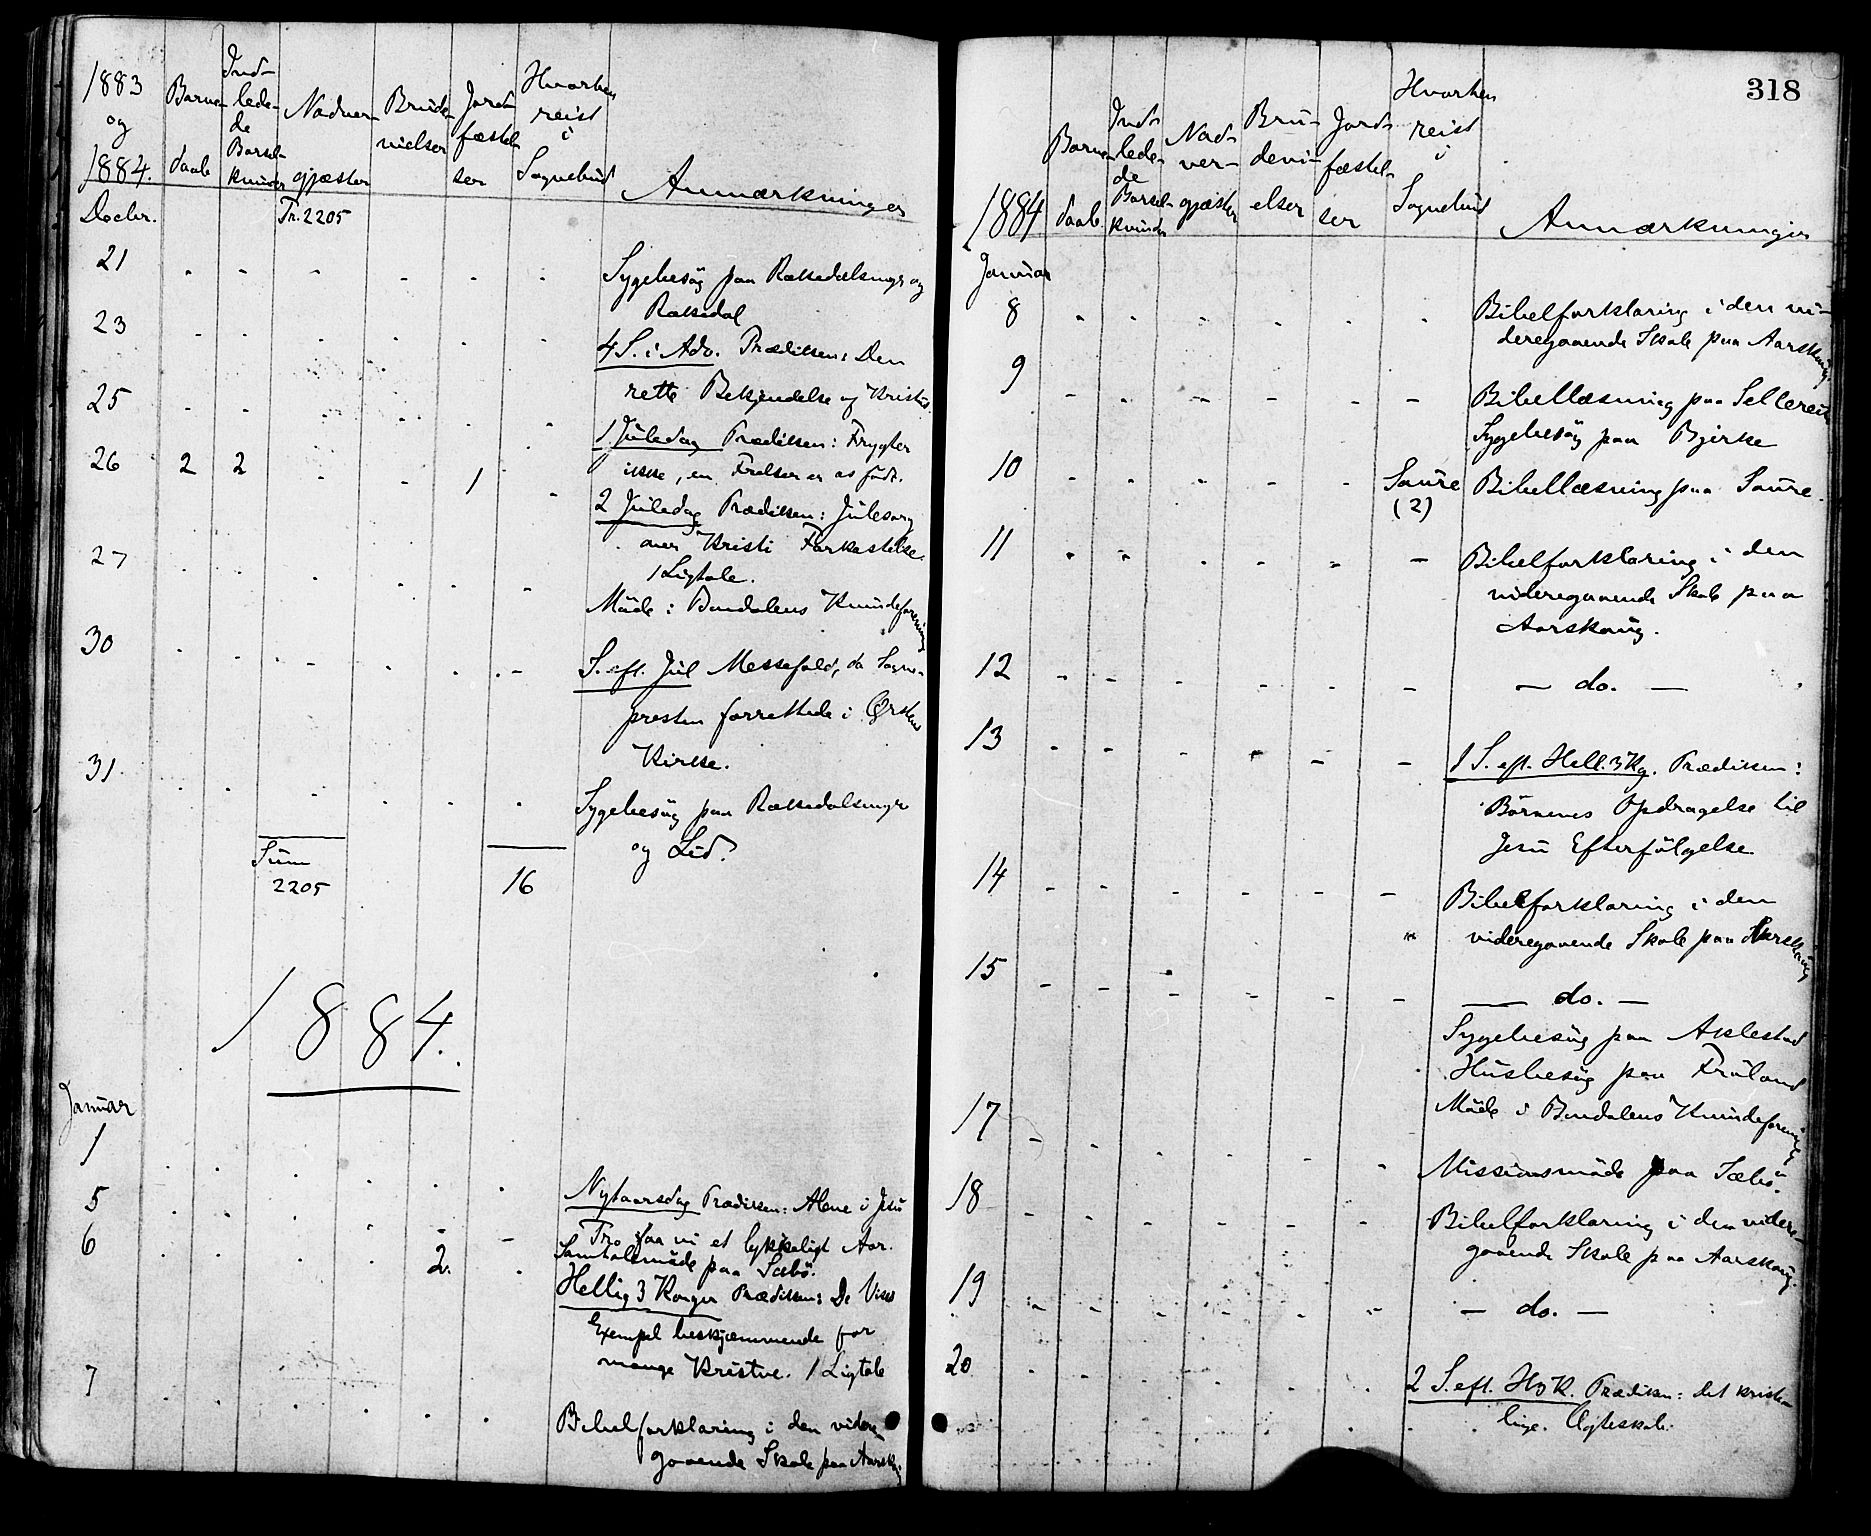 1883 og 1884.
Barne- daab
Ind- lede- de Barsel- kvinder
Nadver- gjæster
Brude- vielser
Jord- fæstel- ser
Hvorhen reist i Sognebud
Anmærkninger
Decbr.
Tr. 2205
21 Sygebesøg paa Rættedalsmyr og
Rættedal
23 4 S. i Adv. Prædiken: Den
rette Bekjendelse af Kristus.
25 1 Juledag Prædiken: Frygter
ikke, en Frelser er os født.
26 2 2 1 2 Juledag Prædiken: Julesorg
over Kristi Forkastelse.
1 Ligtale.
27 Møde i Bondalens Kvindeforening
30 S. eft. Jul Messefald, da Sogne-
presten forrettede i Ørsten
Kirke.
31 Sygebesøg paa Rættedalsmyr
og Lid.
Sum
2205 16
1884.
Januar
1 Nytaarsdag Prædiken: Alene i Jesu
Tro faa vi et lykkeligt Aar.
5 Samtalemøde paa Sæbø.
6 2. Hellig 3 Konger Prædiken: De Vises
Exempel beskjæmmende for
mange Kristne. 1 Ligtale
7 Bibelforklaring i den videre-
gaaende Skole paa Aarskog
318
1884
Barne- daab.
Ind- lede- de Barsel- kvinder
Nad- ver- gjæster
Bru- devi- elser
Jord- fæstel- ser
Hvorhen reist i Sognebud
Anmærkninger
Januar
8 Bibelforklaring i den vi-
deregaaende Skole paa Aarskaug
9 Bibellæsning paa
Sygebesøg paa Bjerke
10 Saure Bibellæsning paa Saure.
(2)
11 Bibelforklaring i den
videregaaende Skole paa
Aarskaug.
12 — do. —
13 1 S. eft. Hell. 3 Kg. Prædiken:
Børnenes Opdragelse til
Jesu Efterfølgelse
14 Bibelforklaring i den
videregaaende Skole paa Aarskaug
15 — do. —
Sygebesøg paa Aklestad
Husbesøg paa
17 Møde i Bondalens Kvindeforening
Missionsmøde paa Sæbø.
18 Bibelforklaring i den videre-
gaaende Skole paa Aarskaug.
19 — do. —
20 2 S. eft. H3K. Prædiken: det kriste-
lige Ægteskab.